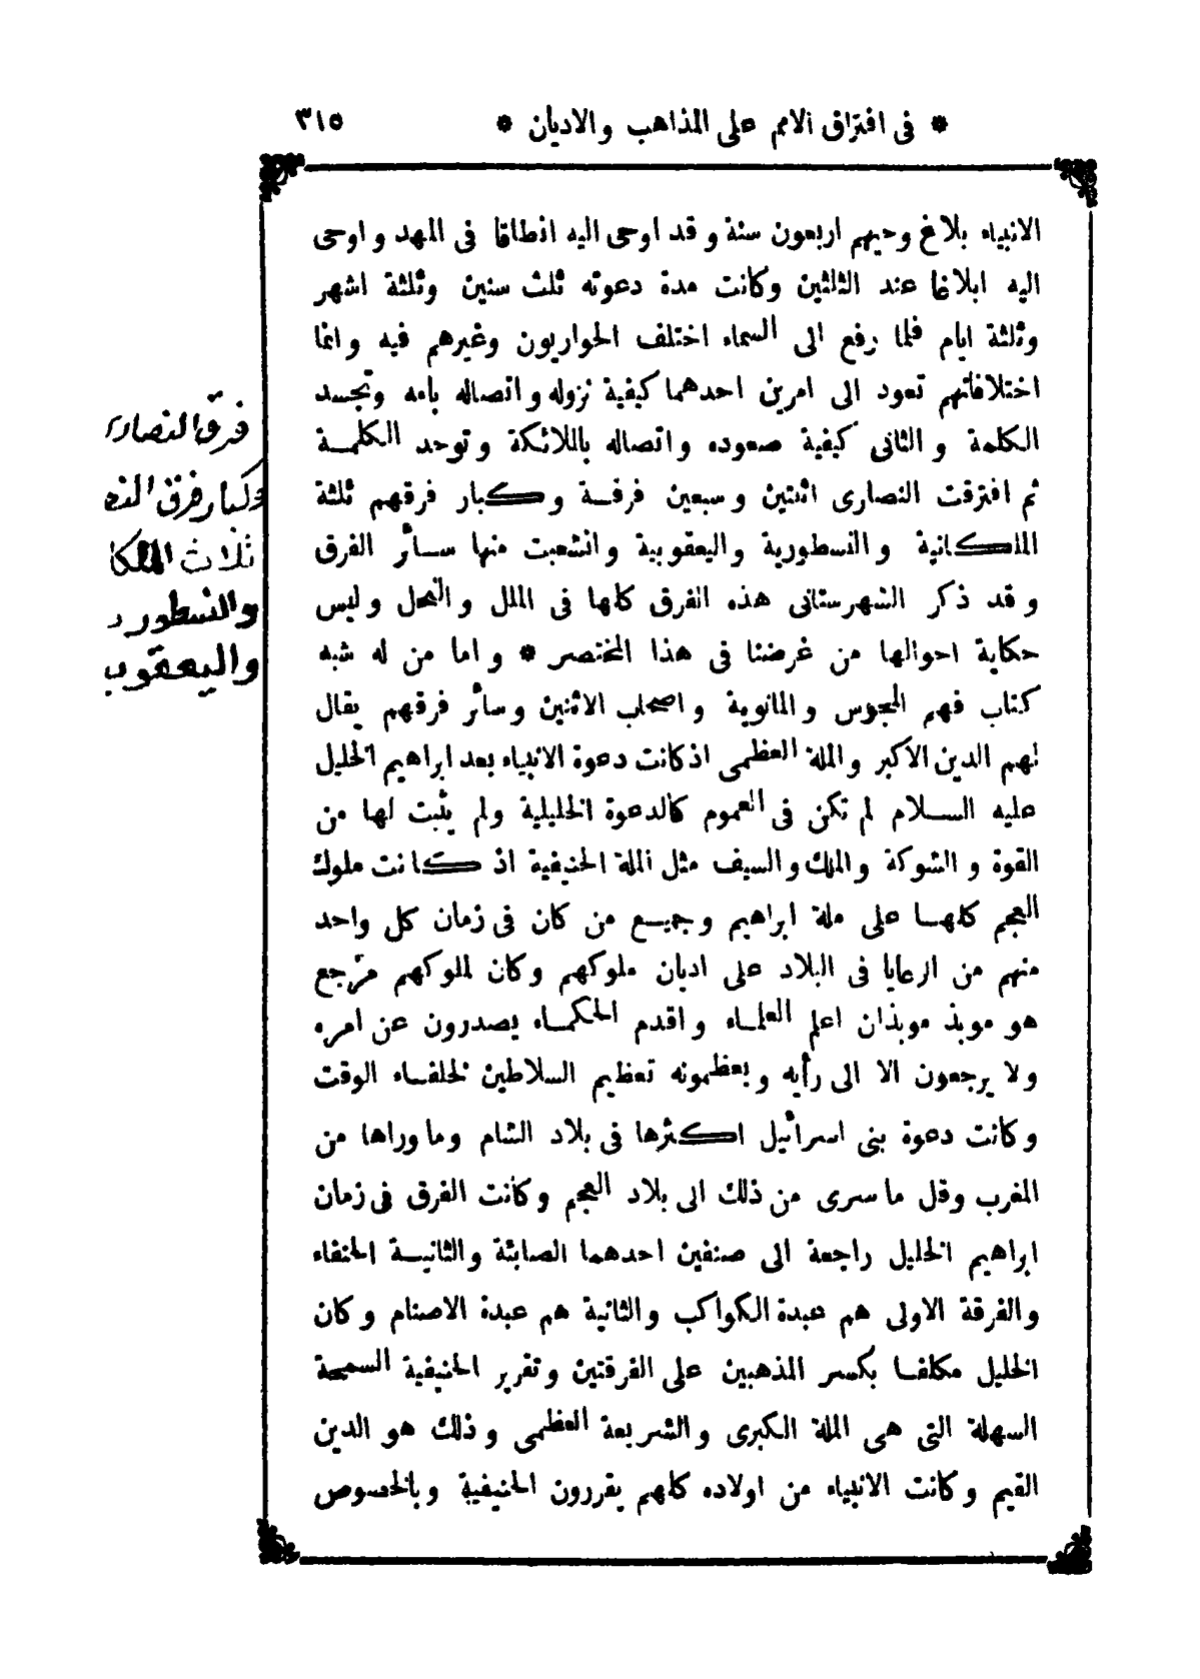 * فى افتراق الامم على المذاهب والاديان * ٣١٥
الانبياء بلاغ وحيهم اربعون سنة وقد اوحى اليه انطاقا فى المهد واوحى
اليه ابلاغا عند الثلثين وكانت مدة دعوته ثلث سنين وثلثة اشهر
وثلثة ايام فلما رفع الى السماء اختلف الحواريون وغيرهم فيه وانما
اختلافاتهم تعود الى امرين احدهما كيفية نزوله واتصاله بامه وتجسد
الكلمة والثانى كيفية صعوده واتصاله بالملائكة وتوحد الكلمة
ثم افترقت النصارى اثنتين وسبعين فرقة وكبار فرقهم ثلثة
الملكانية والنسطورية واليعقوبية وانشعبت منها سائر الفرق
وقد ذكر الشهرستانى هذه الفرق كلها فى الملل والنحل وليس
حكاية احوالها من غرضنا فى هذا المختصر * واما من له شبه
كتاب فهم المجوس والمانوية واصحاب الاثنين وسائر فرقهم يقال
لهم الدين الاكبر والملة العظمى اذ كانت دعوة الانبياء بعد ابراهيم الخليل
عليه السلام لم تكن فى العموم كالدعوة الخليلية ولم يثبت لها من
القوة والشوكة والملك والسيف مثل الملة الحنيفية اذ كانت ملوك
العجم كلها على ملة ابراهيم وجميع من كان فى زمان كل واحد
منهم من الرعايا فى البلاد على اديان ملوكهم وكان لملوكهم مرجع
هو موبذ موبذان اعلم العلماء واقدم الحكماء يصدرون عن امره
ولا يرجعون الا الى رأيه ويعظمونه تعظيم السلاطين لخلفاء الوقت
وكانت دعوة بنى اسرائيل اكثرها فى بلاد الشام وما وراها من
المغرب وقل ما سرى من ذلك الى بلاد العجم وكانت الفرق فى زمان
ابراهيم الخليل راجعة الى صنفين احدهما الصابئة والثانية الحنفاء
والفرقة الاولى هم عبدة الكواكب والثانية هم عبدة الاصنام وكان
الخليل مكلفا بكسر المذهبين على الفرقتين وتقرير الحنيفية السمحة
السهلة التى هى الملة الكبرى والشريعة العظمى وذلك هو الدين
القيم وكانت الانبياء من اولاده كلهم يقررون الحنيفية وبالخصوص
فرق النصارى
وكبار فرق النص
ثلاث الملكا
والنسطور
واليعقوب